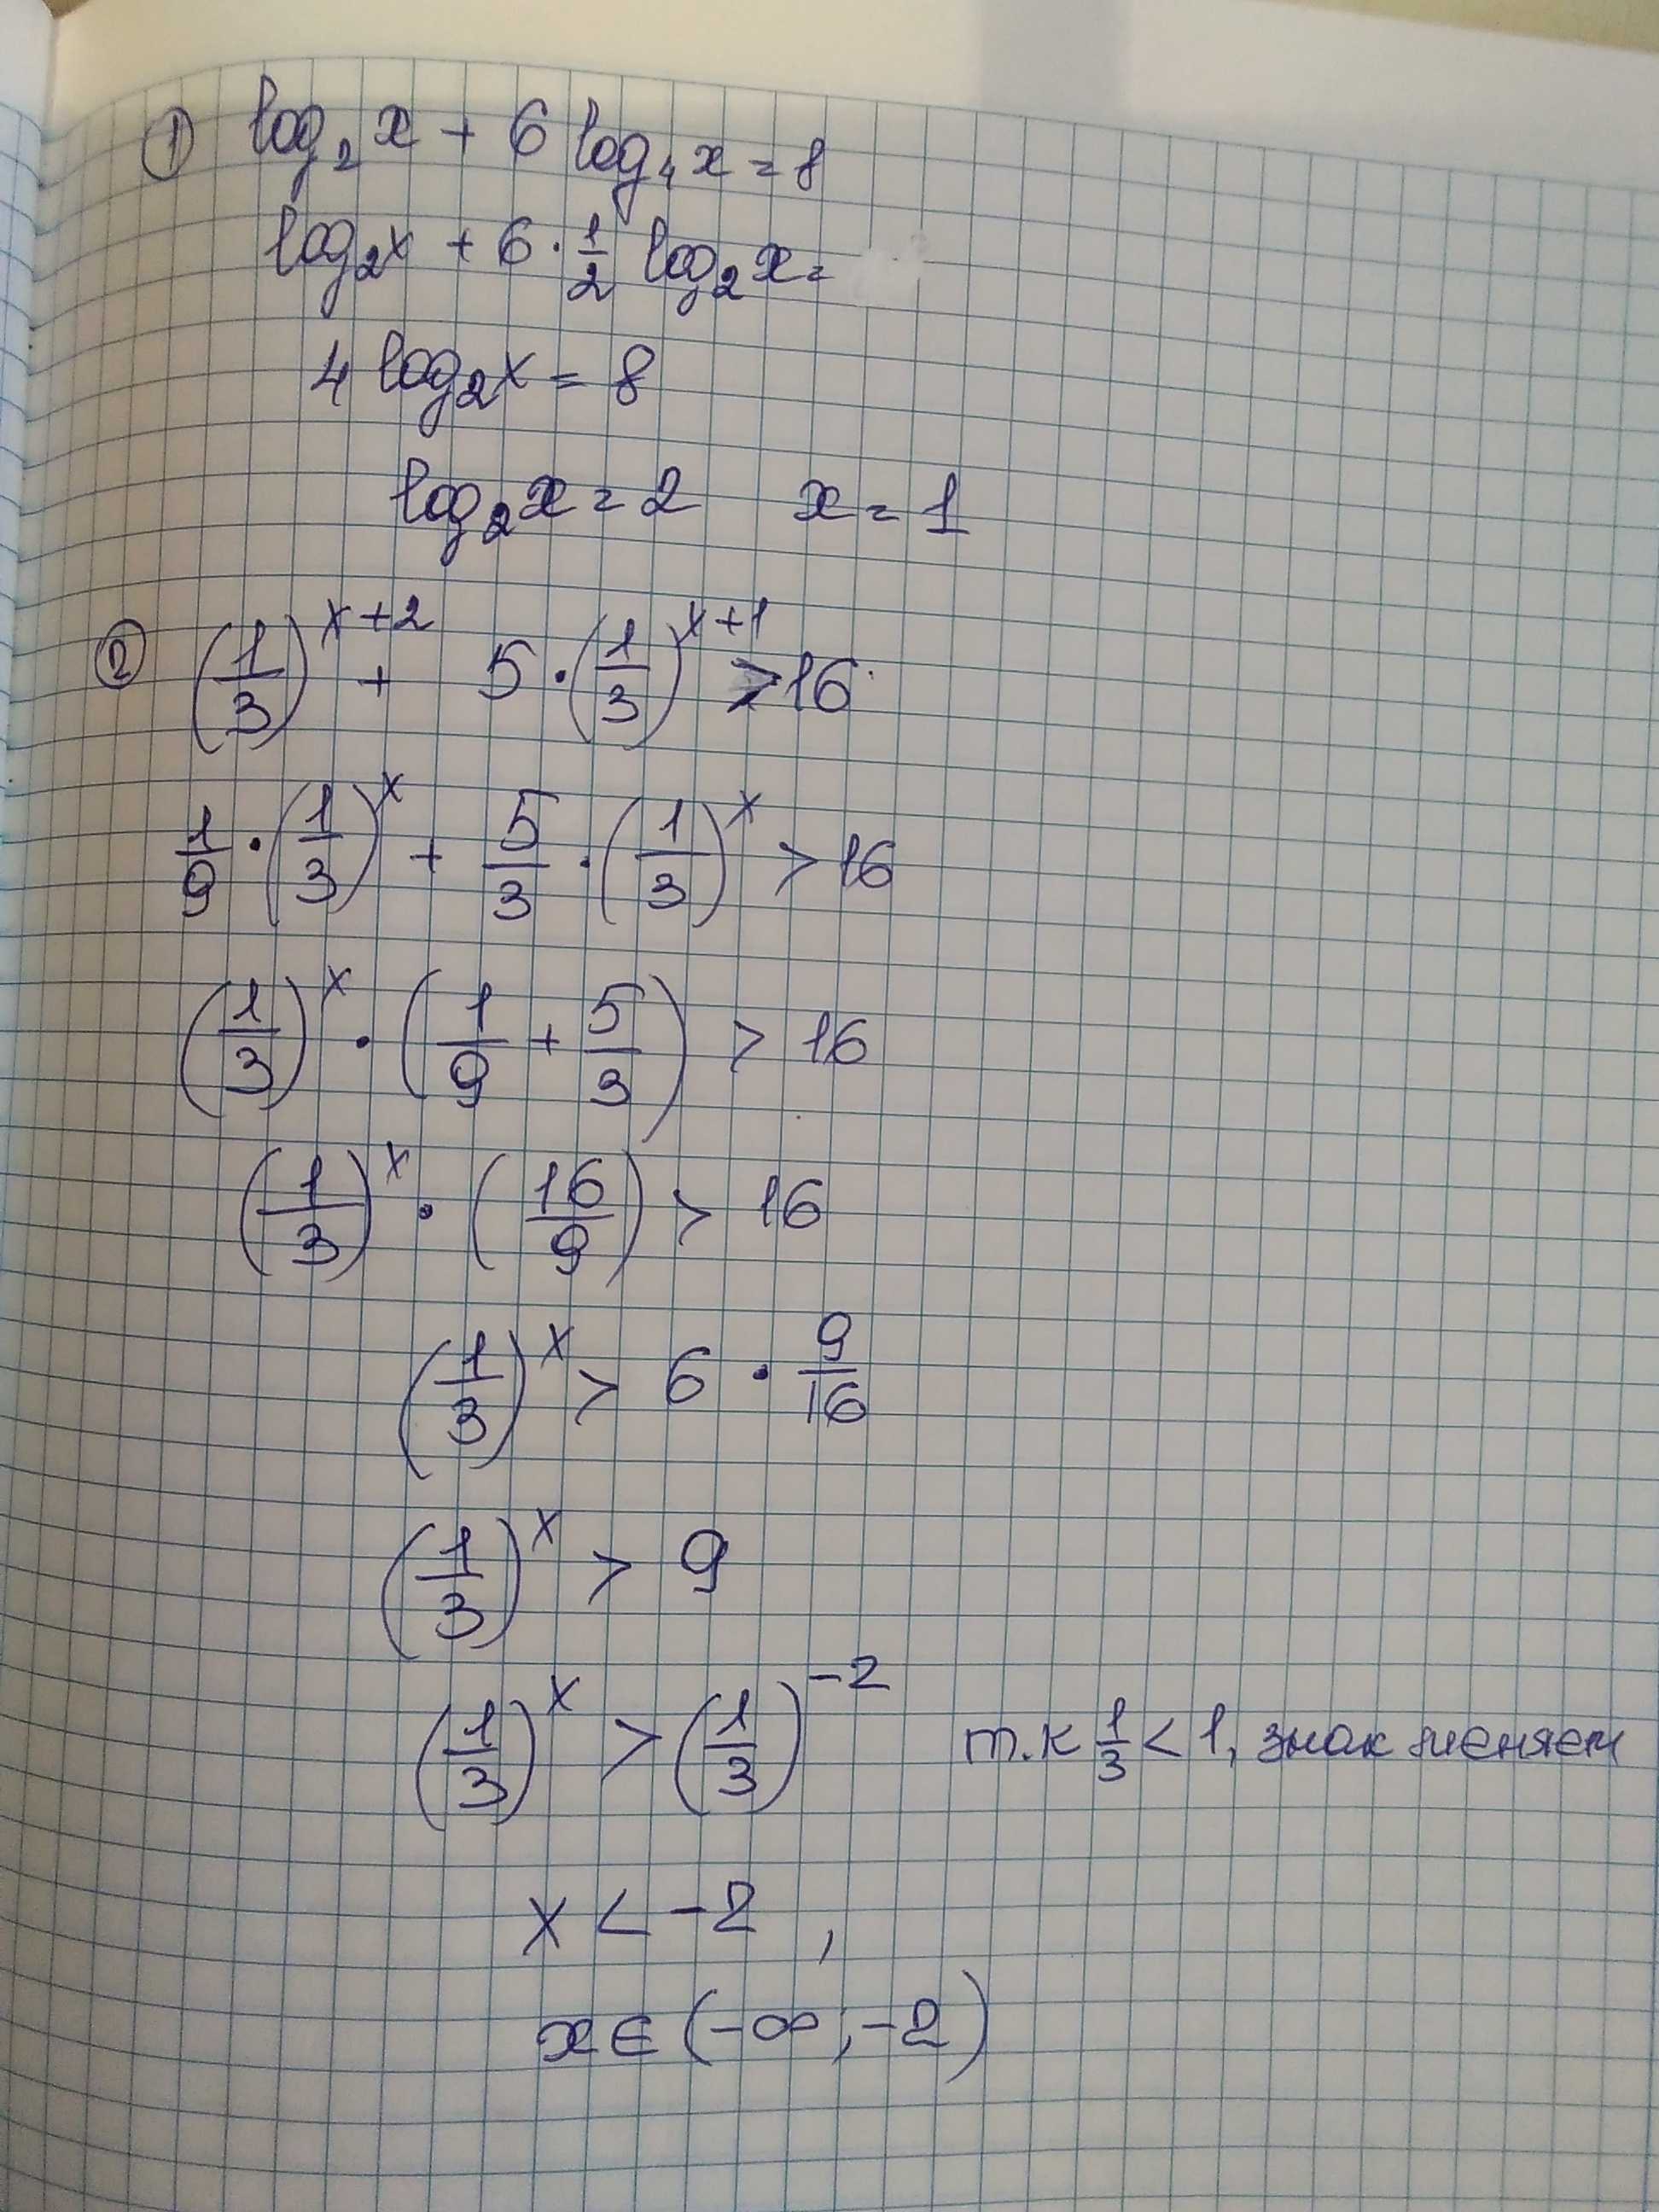 ① log₂ x + 6 log₄ x = 8
log₂ x + 6 · 1/2 log₂ x =
4 log₂ x = 8
log₂ x = 2    x = 1
② (1/3)^(x+2) + 5 · (1/3)^(x+1) > 16
1/9 · (1/3)^x + 5/3 · (1/3)^x > 16
(1/3)^x · (1/9 + 5/3) > 16
(1/3)^x · (16/9) > 16
(1/3)^x > 6 · 9/16
(1/3)^x > 9
(1/3)^x > (1/3)^(-2)    т.к 1/3 < 1, знак меняем
x < -2 ,
x ∈ (-∞; -2)